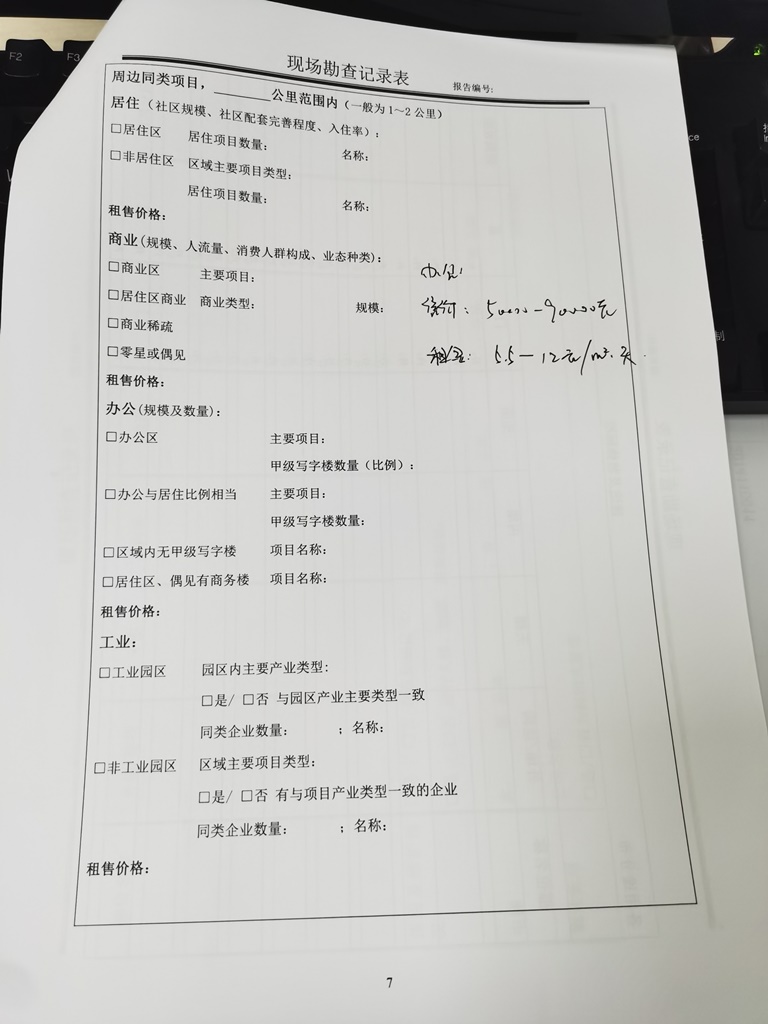 现场勘查记录表
报告编号:
周边同类项目，______公里范围内（一般为1～2公里）
居住（社区规模、社区配套完善程度、入住率）:
□居住区 居住项目数量: 名称:
□非居住区 区域主要项目类型:
居住项目数量: 名称:
租售价格:
商业(规模、人流量、消费人群构成、业态种类):
□商业区 主要项目: 办公:
□居住区商业 商业类型: 规模: 50000-90000元
□商业稀疏
□零星或偶见 租金: 5.5—12元/m²·天
租售价格:
办公(规模及数量):
□办公区 主要项目:
甲级写字楼数量（比例）:
□办公与居住比例相当 主要项目:
甲级写字楼数量:
□区域内无甲级写字楼 项目名称:
□居住区、偶见有商务楼 项目名称:
租售价格:
工业:
□工业园区 园区内主要产业类型:
□是/ □否 与园区产业主要类型一致
同类企业数量: ；名称:
□非工业园区 区域主要项目类型:
□是/ □否 有与项目产业类型一致的企业
同类企业数量: ；名称:
租售价格:
7
F2
F3